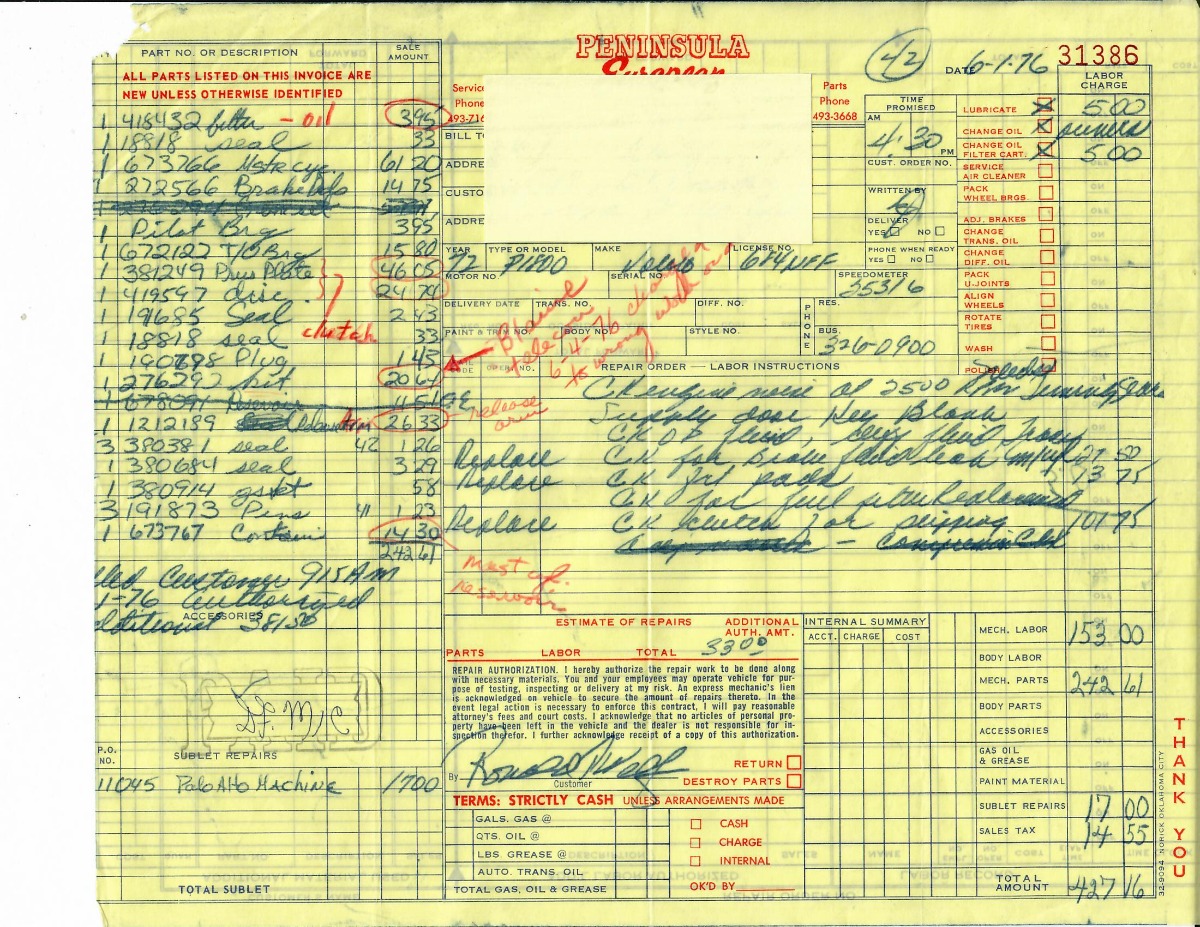 PENINSULA
European
42
DATE 6-1-76
31386
PART NO. OR DESCRIPTION SALE AMOUNT
ALL PARTS LISTED ON THIS INVOICE ARE
NEW UNLESS OTHERWISE IDENTIFIED
1 418432 filter - oil 3 95
1 18818 seal 33
1 673766 Mstr cyc. 61 20
1 272566 Brake 14 75
1 Pilot Brg 3 95
1 672122 T/O Brg 15 80
1 381249 Prus Plate 46 05
1 419597 disc 24 74
clutch
1 19685 Seal 2 43
1 18818 seal 33
1 190798 Plug 1 43
1 276292 kit 20 64
1 678091 Resevoir
1 1212189 26 33
3 380381 seal 42 1 26
1 380684 seal 3 29
1 380914 gsket 58
3 191873 Pins 41 1 23
1 673767 Contain 14 30
242 61
Customer 9 15 AM
1-76 authorized
ACCESSORIES
P.O. NO. SUBLET REPAIRS
11045 Palo Alto Machine 17 00
TOTAL SUBLET
Service
Phone
493-716
Parts
Phone
493-3668
BILL TO
ADDRE
CUSTO
ADDRE
YEAR 72
TYPE OR MODEL P1800
MAKE Volvo
LICENSE NO. 684 NFF
MOTOR NO.
SERIAL NO.
SPEEDOMETER 25316
DELIVERY DATE
TRANS. NO.
DIFF. NO.
PHONE
RES.
PAINT & TRIM NO.
BODY NO.
STYLE NO.
BUS. 326-0900
6-4-76 changed
to wrong
OPER. NO.
REPAIR ORDER — LABOR INSTRUCTIONS
TIME PROMISED
AM
4:30 PM
CUST. ORDER NO.
WRITTEN BY
DELIVER
YES NO
PHONE WHEN READY
YES NO
LABOR CHARGE
LUBRICATE X 5 00
CHANGE OIL X
CHANGE OIL FILTER CART. X 5 00
SERVICE AIR CLEANER
PACK WHEEL BRGS.
ADJ. BRAKES
CHANGE TRANS. OIL
CHANGE DIFF. OIL
PACK U-JOINTS
ALIGN WHEELS
ROTATE TIRES
WASH
POLISH
CK engine noise at 2500 Rpm Timing gears
Supply door Key Blank
release arm
Replace CK for Brake fluid leak M/cyl 27 50
Replace CK frt pads 13 75
CK for fuel filter
Replace CK clutch for slipping 101 75
Mast cyl.
reservoir
ESTIMATE OF REPAIRS
ADDITIONAL AUTH. AMT.
PARTS LABOR TOTAL 33 00
REPAIR AUTHORIZATION. I hereby authorize the repair work to be done along
with necessary materials. You and your employees may operate vehicle for pur-
pose of testing, inspecting or delivery at my risk. An express mechanic's lien
is acknowledged on vehicle to secure the amount of repairs thereto. In the
event legal action is necessary to enforce this contract, I will pay reasonable
attorney's fees and court costs. I acknowledge that no articles of personal pro-
perty have been left in the vehicle and the dealer is not responsible for in-
spection therefor. I further acknowledge receipt of a copy of this authorization.
By
Customer
RETURN
DESTROY PARTS
TERMS: STRICTLY CASH UNLESS ARRANGEMENTS MADE
GALS. GAS @
QTS. OIL @
LBS. GREASE @
AUTO. TRANS. OIL
TOTAL GAS, OIL & GREASE
CASH
CHARGE
INTERNAL
OK'D BY
INTERNAL SUMMARY
ACCT. CHARGE COST
MECH. LABOR 153 00
BODY LABOR
MECH. PARTS 242 61
BODY PARTS
ACCESSORIES
GAS OIL & GREASE
PAINT MATERIAL
SUBLET REPAIRS 17 00
SALES TAX 14 55
TOTAL AMOUNT 427 16
32-9094 NORICK OKLAHOMA CITY
THANK YOU